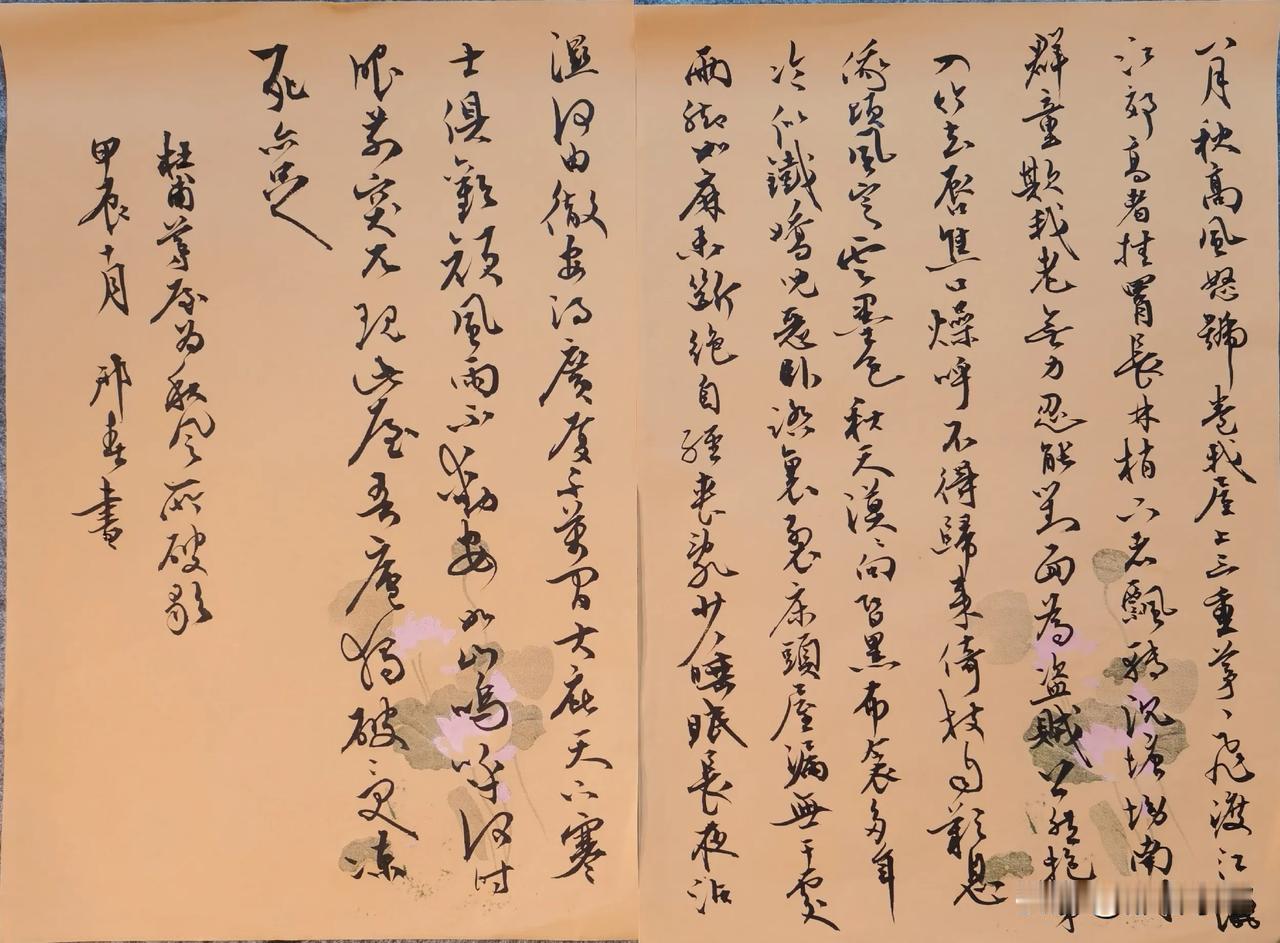 八月秋高風怒號卷我屋上三重茅〻飛渡江灑
江郊高者挂罥長林梢下者飄轉沉塘坳南
群童欺我老無力忍能對面為盜賊公然抱茅
入竹去唇焦口燥呼不得歸來倚杖自歎息
俄頃風定雲墨色秋天漠〻向昏黑布衾多年
冷似鐵嬌兒惡臥踏裏裂床頭屋漏無干處
雨腳如麻未斷絕自經喪亂少睡眠長夜沾
濕何由徹安得廣廈千萬間大庇天下寒
士俱歡顏風雨不動安如山嗚呼何時
眼前突兀現此屋吾廬獨破受凍
死亦足
杜甫茅屋為秋风所破歌
甲辰十月 邦春書